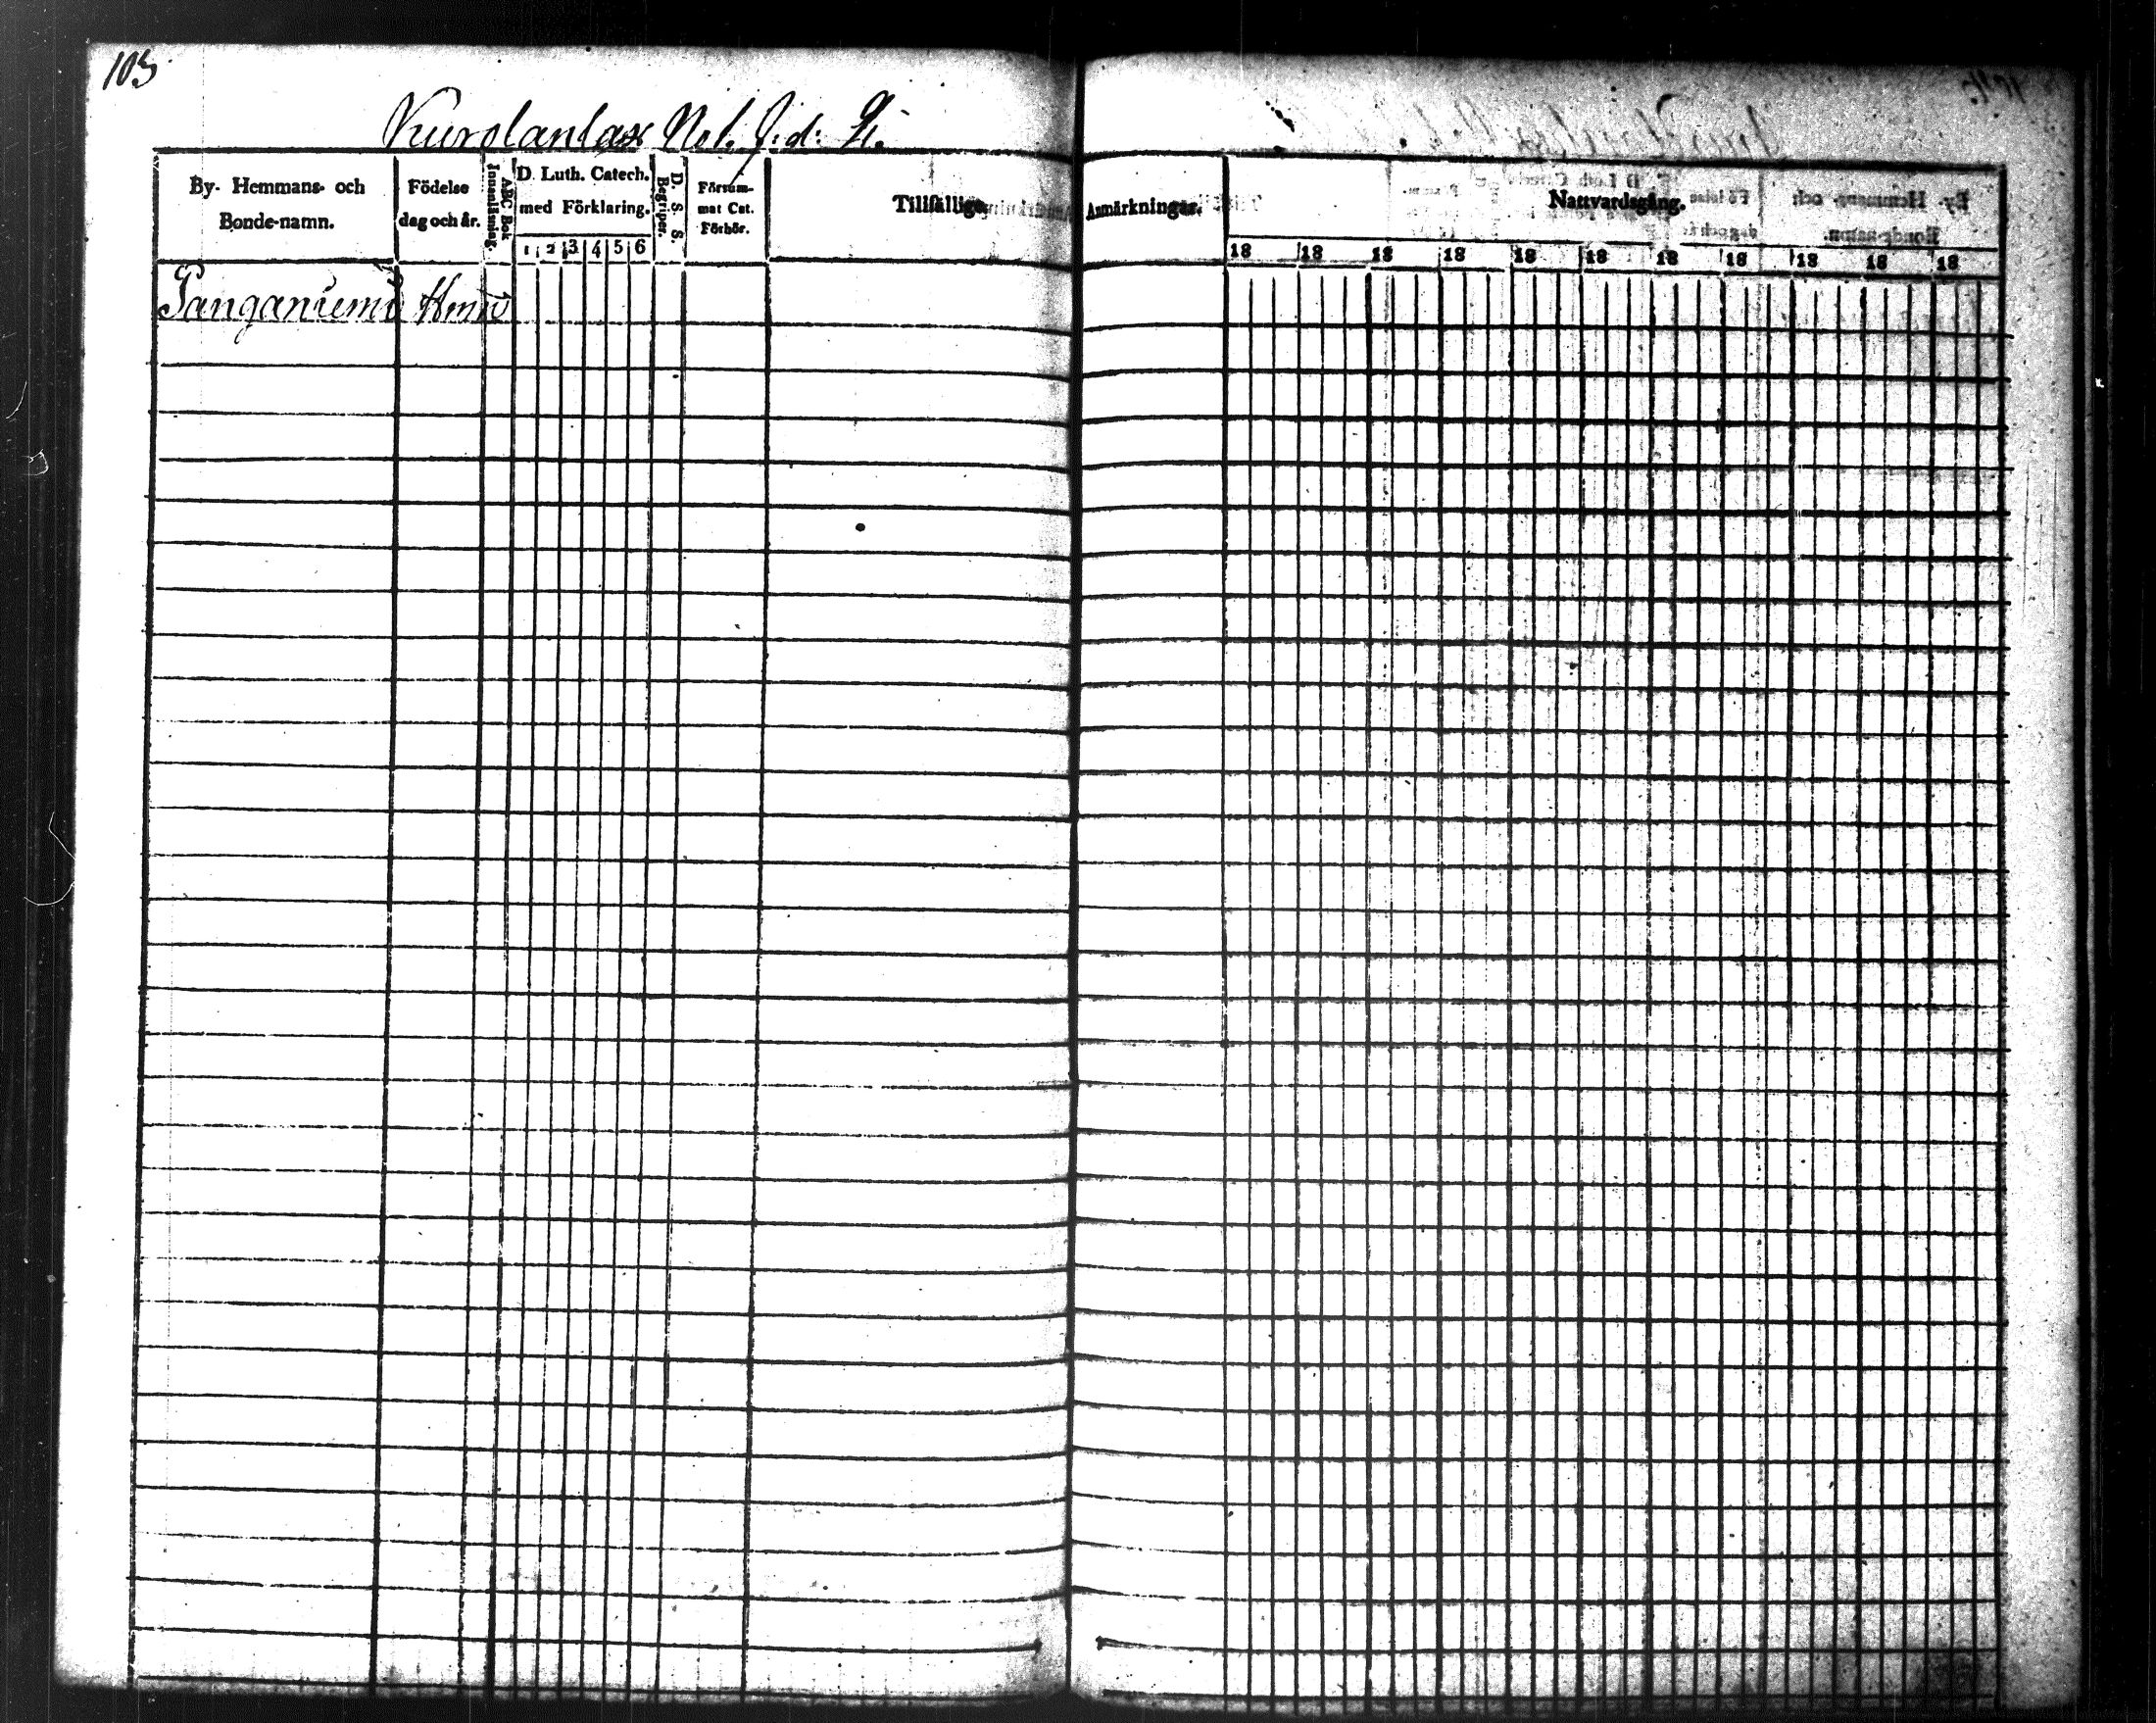 103
Kurolanlax No 1. J: d: 2.
By- Hemmans- och Bonde-namn.
Födelse dag och år.
ABC Bok Innanläsning.
D. Luth. Catech. med Förklaring.
1 2 3 4 5 6
D. S. S. Begriper.
Försummat Cat. Förhör.
Tillfällige
Anmärkningar.
Nattvardsgång.
18 18 18 18 18 18 18 18 18 18 18
Panganiemi Hem̄